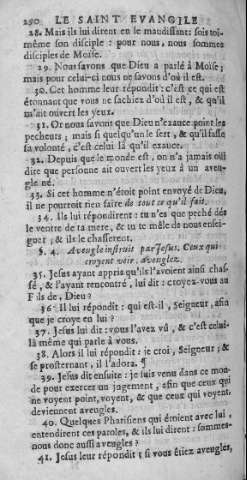 290 LE SAINT EVANGILE
28. Mais ils lui dirent en le maudissant: sois toi-
même son disciple: pour nous, nous sommes
disciples de Moïse.
29. Nous savons que Dieu a parlé à Moïse;
mais pour celui-ci nous ne savons d'où il est.
30. Cet homme leur répondit: c'est ce qui est
étonnant que vous ne sachiez d'où il est, & qu'il
m'ait ouvert les yeux.
31. Or nous savons que Dieu n'exauce point les
pecheurs; mais si quelqu'un le sert, & qu'il fasse
sa volonté, c'est celui là qu'il exauce.
32. Depuis que le monde est, on n'a jamais oüi
dire que personne ait ouvert les yeux à un aveu-
gle né.
33. Si cet homme n'étoit point envoyé de Dieu,
il ne pourroit rien faire de tout ce qu'il fait.
34. Ils lui répondirent: tu n'és que peché dés
le ventre de ta mere, & tu te mêle de nous ensei-
gner; & ils le chasserent.
§. 4. Aveugle instruit par Jesus. Ceux qui
croyent voir, aveuglez.
35. Jesus ayant appris qu'il l'avoient ainsi chas-
sé, & l'ayant rencontré, lui dit: croyez-vous au
Fils de, Dieu?
36. Il lui répondit: qui est-il, Seigneur, afin
que je croye en lui?
37. Jesus lui dit: vous l'avez vû, & c'est celui-
là même qui parle à vous.
38. Alors il lui répondit: je croi, Seigneur; &
se prosternant, il l'adora. ¶
39. Jesus dit ensuite: je suis venu dans ce mon-
de pour exercer un jugement, afin que ceux qui
ne voyent point, voyent, & que ceux qui voyent,
deviennent aveugles.
40. Quelques Pharisiens qui étoient avec lui,
entendirent ces paroles, & ils lui dirent: sommes-
nous donc aussi aveugles?
41. Jesus leur répondit; si vous étiez aveugles,